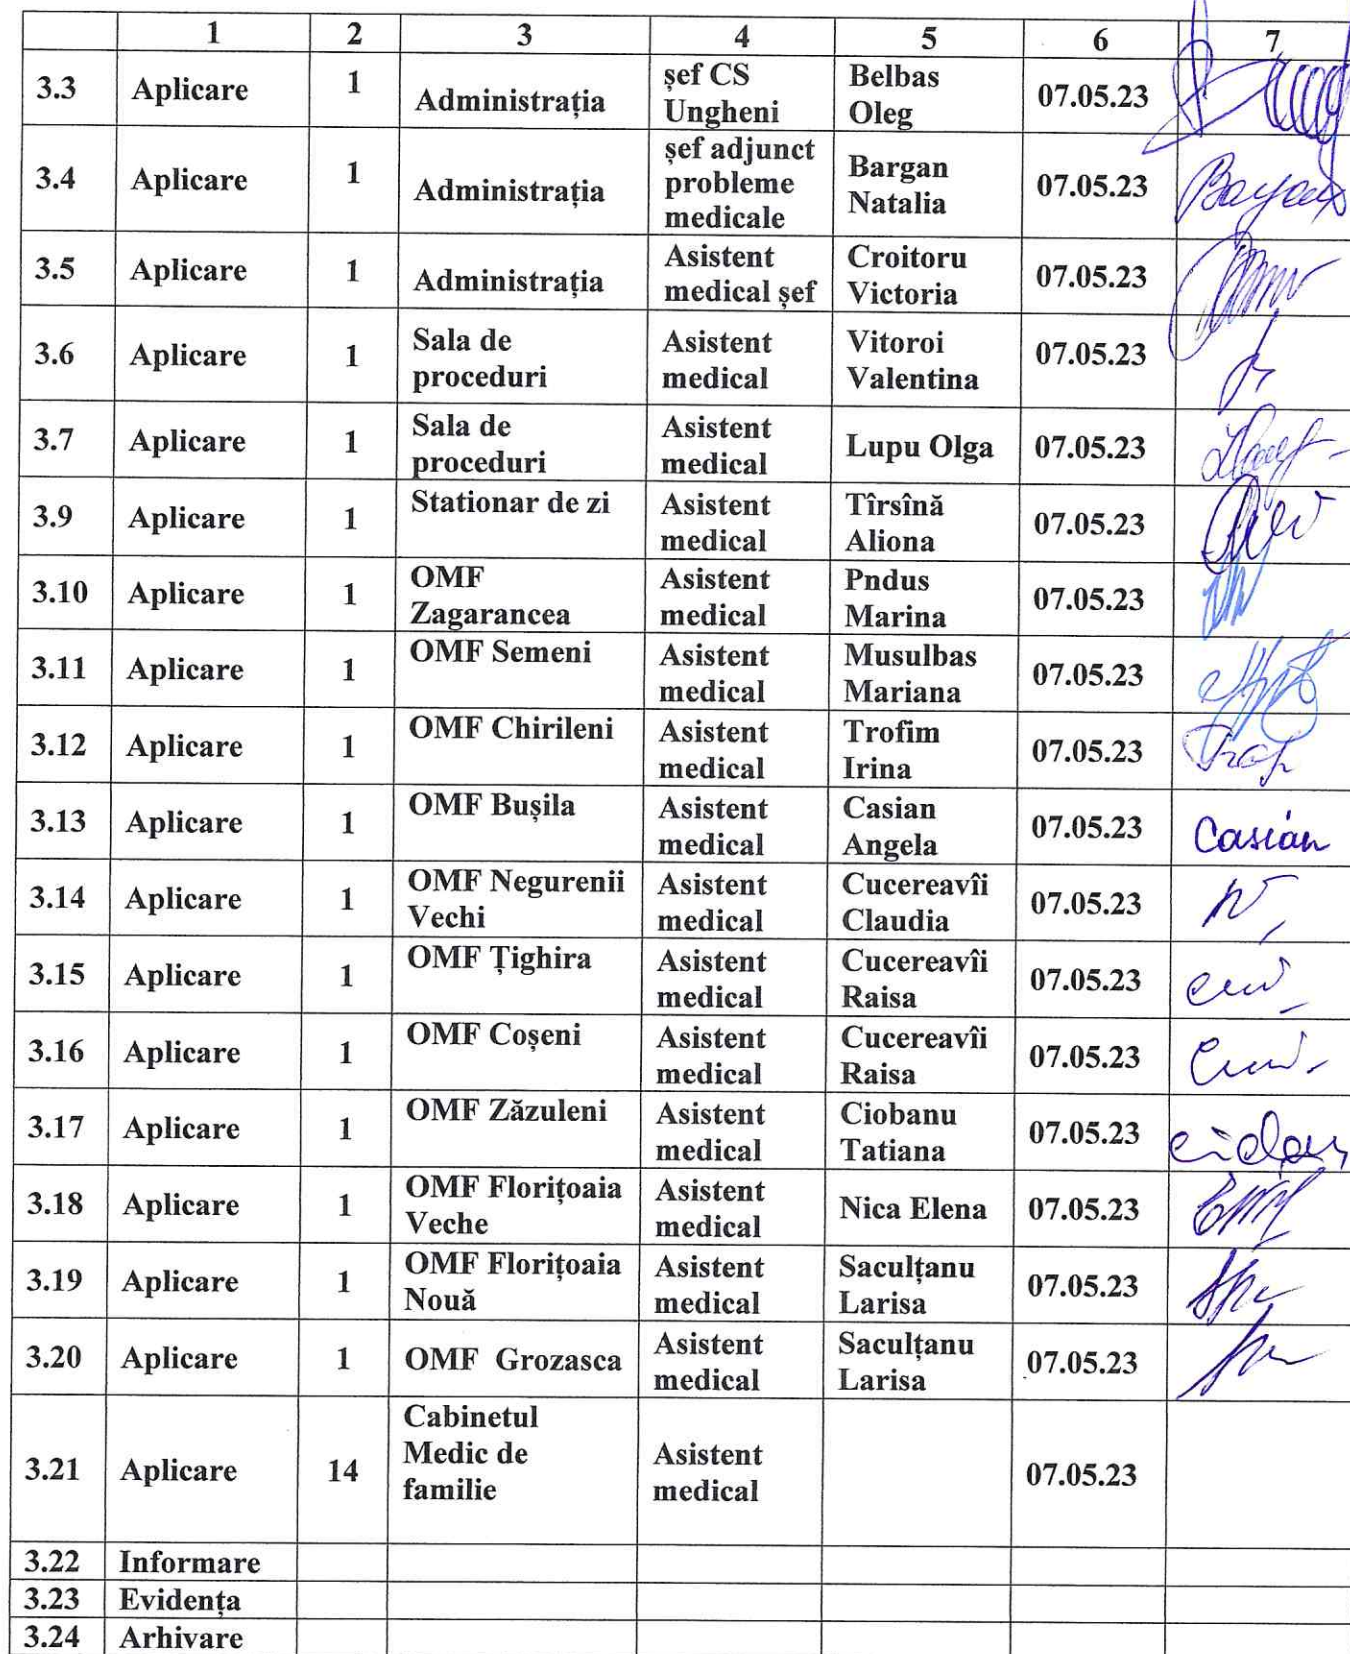 1 2 3 4 5 6 7
3.3 Aplicare 1 Administrația șef CS Ungheni Belbas Oleg 07.05.23
3.4 Aplicare 1 Administrația șef adjunct probleme medicale Bargan Natalia 07.05.23
3.5 Aplicare 1 Administrația Asistent medical șef Croitoru Victoria 07.05.23
3.6 Aplicare 1 Sala de proceduri Asistent medical Vitoroi Valentina 07.05.23
3.7 Aplicare 1 Sala de proceduri Asistent medical Lupu Olga 07.05.23
3.9 Aplicare 1 Stationar de zi Asistent medical Tîrsînă Aliona 07.05.23
3.10 Aplicare 1 OMF Zagarancea Asistent medical Pndus Marina 07.05.23
3.11 Aplicare 1 OMF Semeni Asistent medical Musulbas Mariana 07.05.23
3.12 Aplicare 1 OMF Chirileni Asistent medical Trofim Irina 07.05.23
3.13 Aplicare 1 OMF Bușila Asistent medical Casian Angela 07.05.23 Casian
3.14 Aplicare 1 OMF Negurenii Vechi Asistent medical Cucereavîi Claudia 07.05.23
3.15 Aplicare 1 OMF Țighira Asistent medical Cucereavîi Raisa 07.05.23
3.16 Aplicare 1 OMF Coșeni Asistent medical Cucereavîi Raisa 07.05.23
3.17 Aplicare 1 OMF Zăzuleni Asistent medical Ciobanu Tatiana 07.05.23
3.18 Aplicare 1 OMF Florițoaia Veche Asistent medical Nica Elena 07.05.23
3.19 Aplicare 1 OMF Florițoaia Nouă Asistent medical Saculțanu Larisa 07.05.23
3.20 Aplicare 1 OMF Grozasca Asistent medical Saculțanu Larisa 07.05.23
3.21 Aplicare 14 Cabinetul Medic de familie Asistent medical 07.05.23
3.22 Informare
3.23 Evidența
3.24 Arhivare